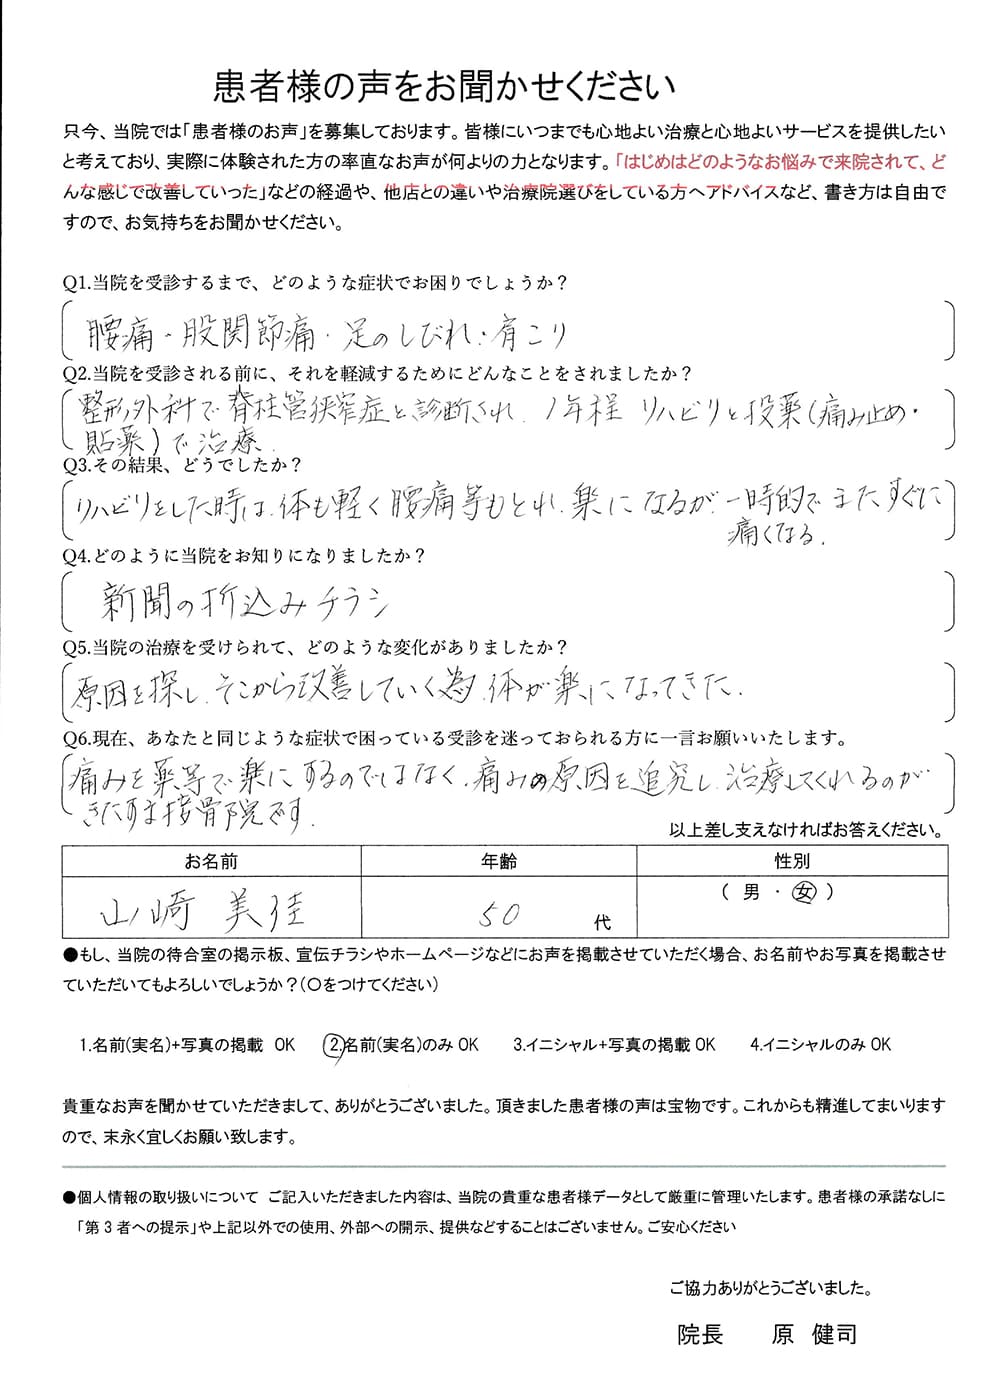 患者様の声をお聞かせください
只今、当院では「患者様のお声」を募集しております。皆様にいつまでも心地よい治療と心地よいサービスを提供したい
と考えており、実際に体験された方の率直なお声が何よりの力となります。「はじめはどのようなお悩みで来院されて、ど
んな感じで改善していった」などの経過や、他店との違いや治療院選びをしている方へアドバイスなど、書き方は自由で
すので、お気持ちをお聞かせください。
Q1.当院を受診するまで、どのような症状でお困りでしょうか？
腰痛・股関節痛・足のしびれ・肩こり
Q2.当院を受診される前に、それを軽減するためにどんなことをされましたか？
整形外科で脊柱管狭窄症と診断され、1年程 リハビリと投薬(痛み止め・
貼薬)で治療.
Q3.その結果、どうでしたか？
リハビリをした時は、体も軽く腰痛等もとれ、楽になるが、一時的でまたすぐに
痛くなる.
Q4.どのように当院をお知りになりましたか？
新聞の折込みチラシ
Q5.当院の治療を受けられて、どのような変化がありましたか？
原因を探し、そこから改善していく為、体が楽になってきた.
Q6.現在、あなたと同じような症状で困っている受診を迷っておられる方に一言お願いいたします。
痛みを薬等で楽にするのではなく、痛みの原因を追究し、治療してくれるのが
きたすま接骨院です.
以上差し支えなければお答えください。
お名前 年齢 性別
山崎 美佳 50 代 （ 男 ・ 女 ）
●もし、当院の待合室の掲示板、宣伝チラシやホームページなどにお声を掲載させていただく場合、お名前やお写真を掲載させ
ていただいてもよろしいでしょうか？(○をつけてください)
1.名前(実名)+写真の掲載 OK 2.名前(実名)のみ OK 3.イニシャル+写真の掲載 OK 4.イニシャルのみ OK
貴重なお声を聞かせていただきまして、ありがとうございました。頂きました患者様の声は宝物です。これからも精進してまいります
ので、末永く宜しくお願い致します。
●個人情報の取り扱いについて ご記入いただきました内容は、当院の貴重な患者様データとして厳重に管理いたします。患者様の承諾なしに
「第３者への提示」や上記以外での使用、外部への開示、提供などすることはございません。ご安心ください
ご協力ありがとうございました。
院長 原 健司